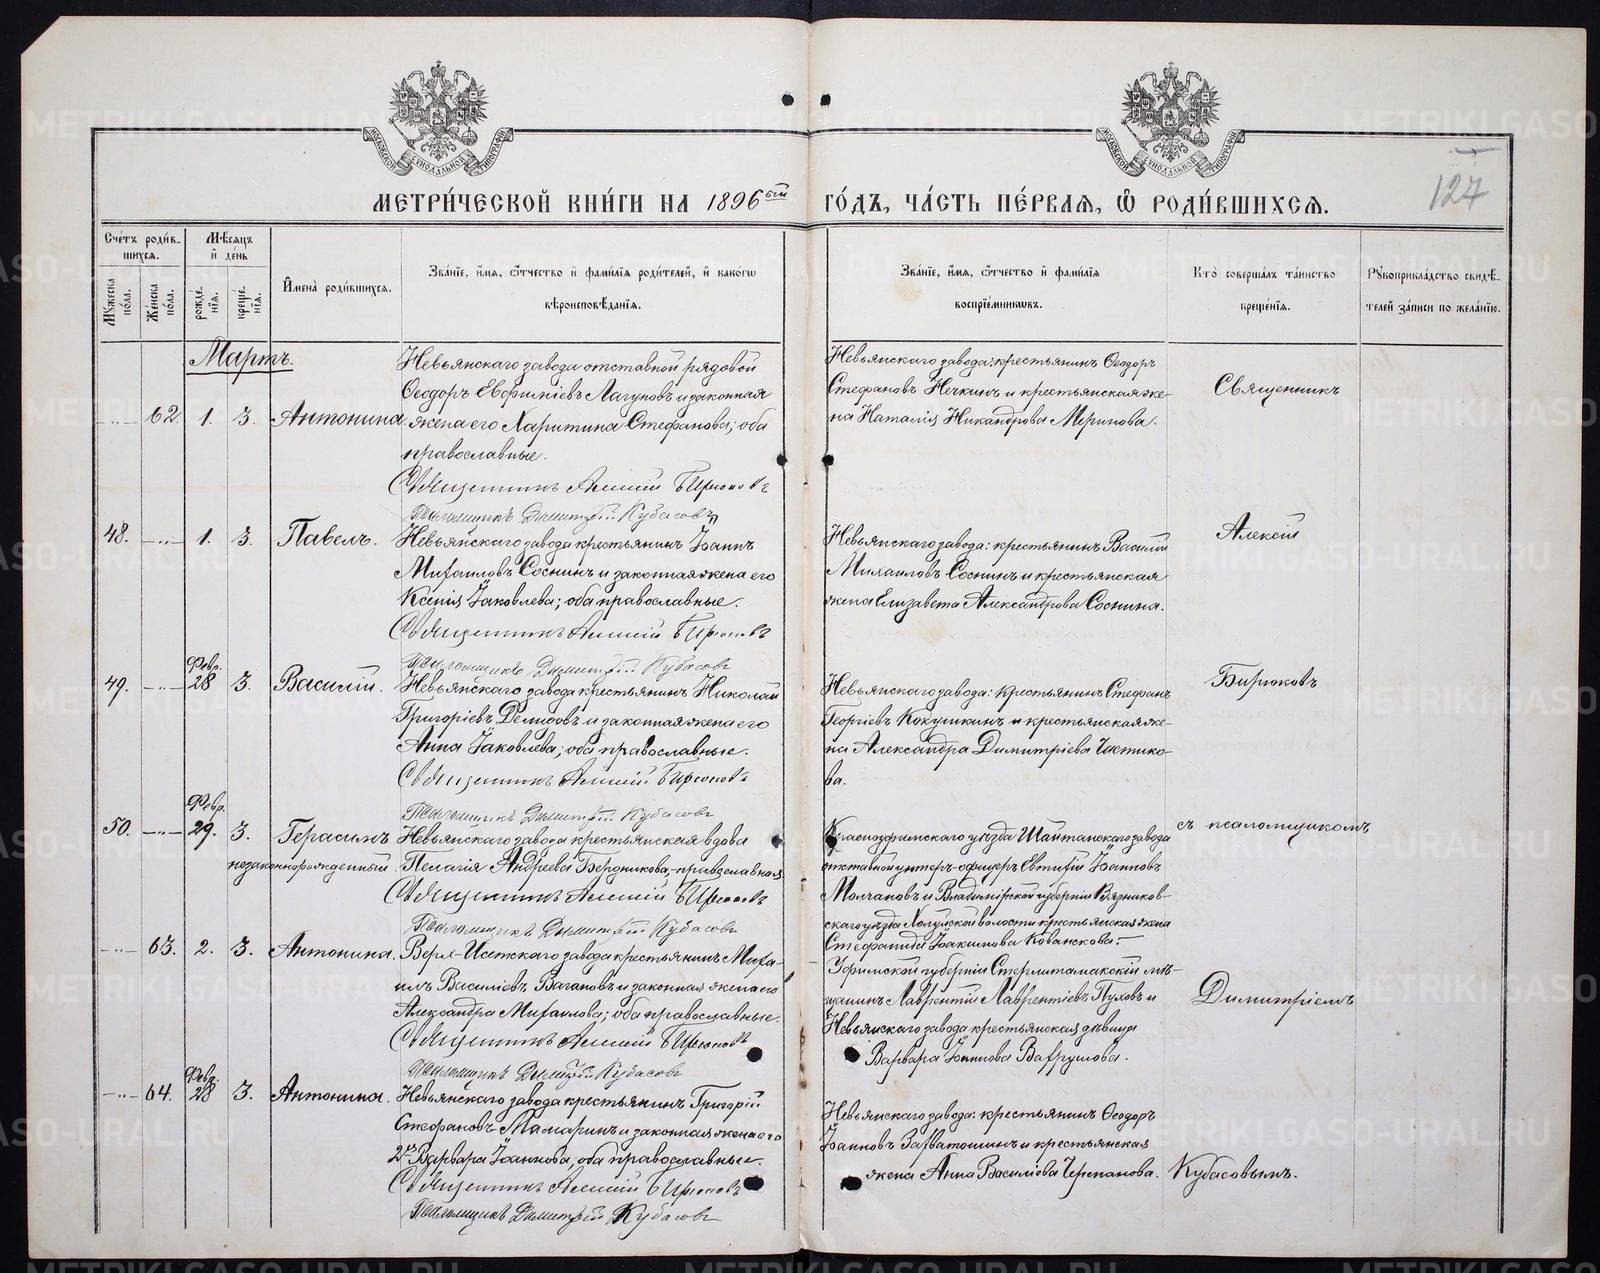 МЕТРИ́ЧЕСКОЙ КНИ́ГИ НА 1896ый ГО́ДЪ, ЧА́СТЬ ПЕ́РВАЯ, Ѡ҆ РОДИ́ВШИХСЯ.
127
Сче́тъ роди́в-
шихся.
Мꙋ́жеска по́ла.
Же́нска по́ла.
Мѣ́сяцъ и҆ де́нь
рожде́нїя.
креще́нїя.
И҆мена̀ роди́вшихся.
Зва́нїе, и҆́мя, ѻ҆́тчество и҆ фами́лїя роди́телей, и҆ како́гѡ
вѣроисповѣ́данїя.
Зва́нїе, и҆́мя, ѻ҆́тчество и҆ фами́лїя
воспрїе́мниковъ.
Кто̀ соверша́лъ та́инство
креще́нїя.
Рꙋкоприкла́дство свидѣ́-
телей за́писи по жела́нїю.
Мартъ.
62. 1. 3. Антонина.
Невьянскаго завода отставной рядовой
Ѳеодоръ Евфиміевъ Лагуновъ и законная
жена его Харитина Стефанова; оба
православные.
Священникъ Алексій Бирюковъ
Псаломщикъ Димитрій Кубасовъ
Невьянскаго завода: крестьянинъ Ѳеодоръ
Стефановъ Нечкинъ и крестьянская же-
на Наталія Никандрова Меринова.
Священникъ
48. 1. 3. Павелъ.
Невьянскаго завода крестьянинъ Іоаннъ
Михаиловъ Соснинъ и законная жена его
Ксенія Іаковлева; оба православные.
Священникъ Алексій Бирюковъ
Псаломщикъ Димитрій Кубасовъ
Невьянскаго завода: крестьянинъ Василій
Михаиловъ Соснинъ и крестьянская
жена Елизавета Александрова Соснина.
Алексій
49. Февр. 28 3. Василій.
Невьянскаго завода крестьянинъ Николай
Григоріевъ Демидовъ и законная жена его
Анна Іаковлева; оба православные.
Священникъ Алексій Бирюковъ
Псаломщикъ Димитрій Кубасовъ
Невьянскаго завода: крестьянинъ Стефанъ
Георгіевъ Кокушкинъ и крестьянская же-
на Александра Димитріева Частико-
ва.
Бирюковъ
50. Февр. 29. 3. Герасимъ
незаконнорожденный.
Невьянскаго завода крестьянская вдова
Пелагія Андреева Бердникова, православная
Священникъ Алексій Бирюковъ
Псаломщикъ Димитрій Кубасовъ
Красноуфимскаго уѣзда Шайтанскаго завода
отставной унтеръ-офицеръ Евтихій Іоанновъ
Молчановъ и Владимірской губерніи Вязников-
скаго уѣзда Холуйской волости крестьянская жена
Стефанида Іоакимова
съ псаломщикомъ
63. 2. 3. Антонина.
Верх-Исетскаго завода крестьянинъ Миха-
илъ Василіевъ Вагановъ и законная жена его
Александра Михаилова; оба православные.
Священникъ Алексій Бирюковъ
Псаломщикъ Димитрій Кубасовъ
Уфимской губерніи Стерлитамакскій мѣ-
щанинъ Лаврентій Лаврентіевъ Пуховъ и
Невьянскаго завода крестьянская дѣвица
Варвара Іоаннова Вахрушова.
Димитріемъ
64. Февр. 28 3. Антонина.
Невьянскаго завода крестьянинъ Григорій
Стефановъ Мамаринъ и законная жена его
Варвара Іоаннова; оба православные.
Священникъ Алексій Бирюковъ
Псаломщикъ Димитрій Кубасовъ
Невьянскаго завода: крестьянинъ Ѳеодоръ
Іоанновъ Захватошинъ и крестьянская
жена Анна Василіева Черепанова.
Кубасовымъ.
METRIKI.GASO-URAL.RU